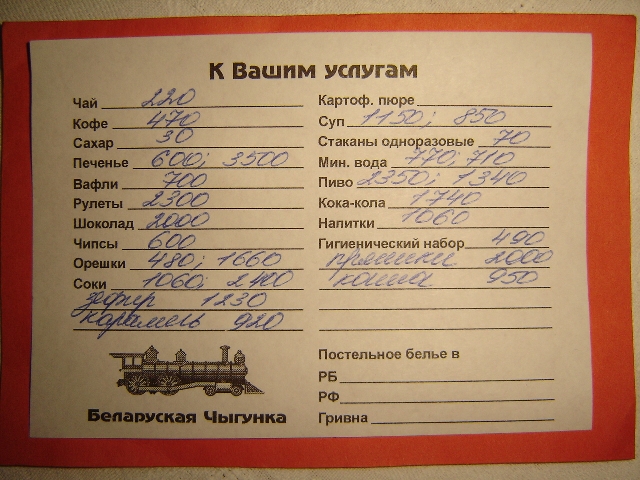 К Вашим услугам
Чай 220
Кофе 470
Сахар 30
Печенье 600; 3500
Вафли 700
Рулеты 2300
Шоколад 2000
Чипсы 600
Орешки 480; 1660
Соки 1060; 2400
зефир 1230
карамель 920
Беларуская Чыгунка
Картоф. пюре
Суп 1150; 850
Стаканы одноразовые 70
Мин. вода 770; 710
Пиво 2350; 1340
Кока-кола 1740
Напитки 1060
Гигиенический набор 490
пряники 2000
каша 950
Постельное белье в
РБ
РФ
Гривна